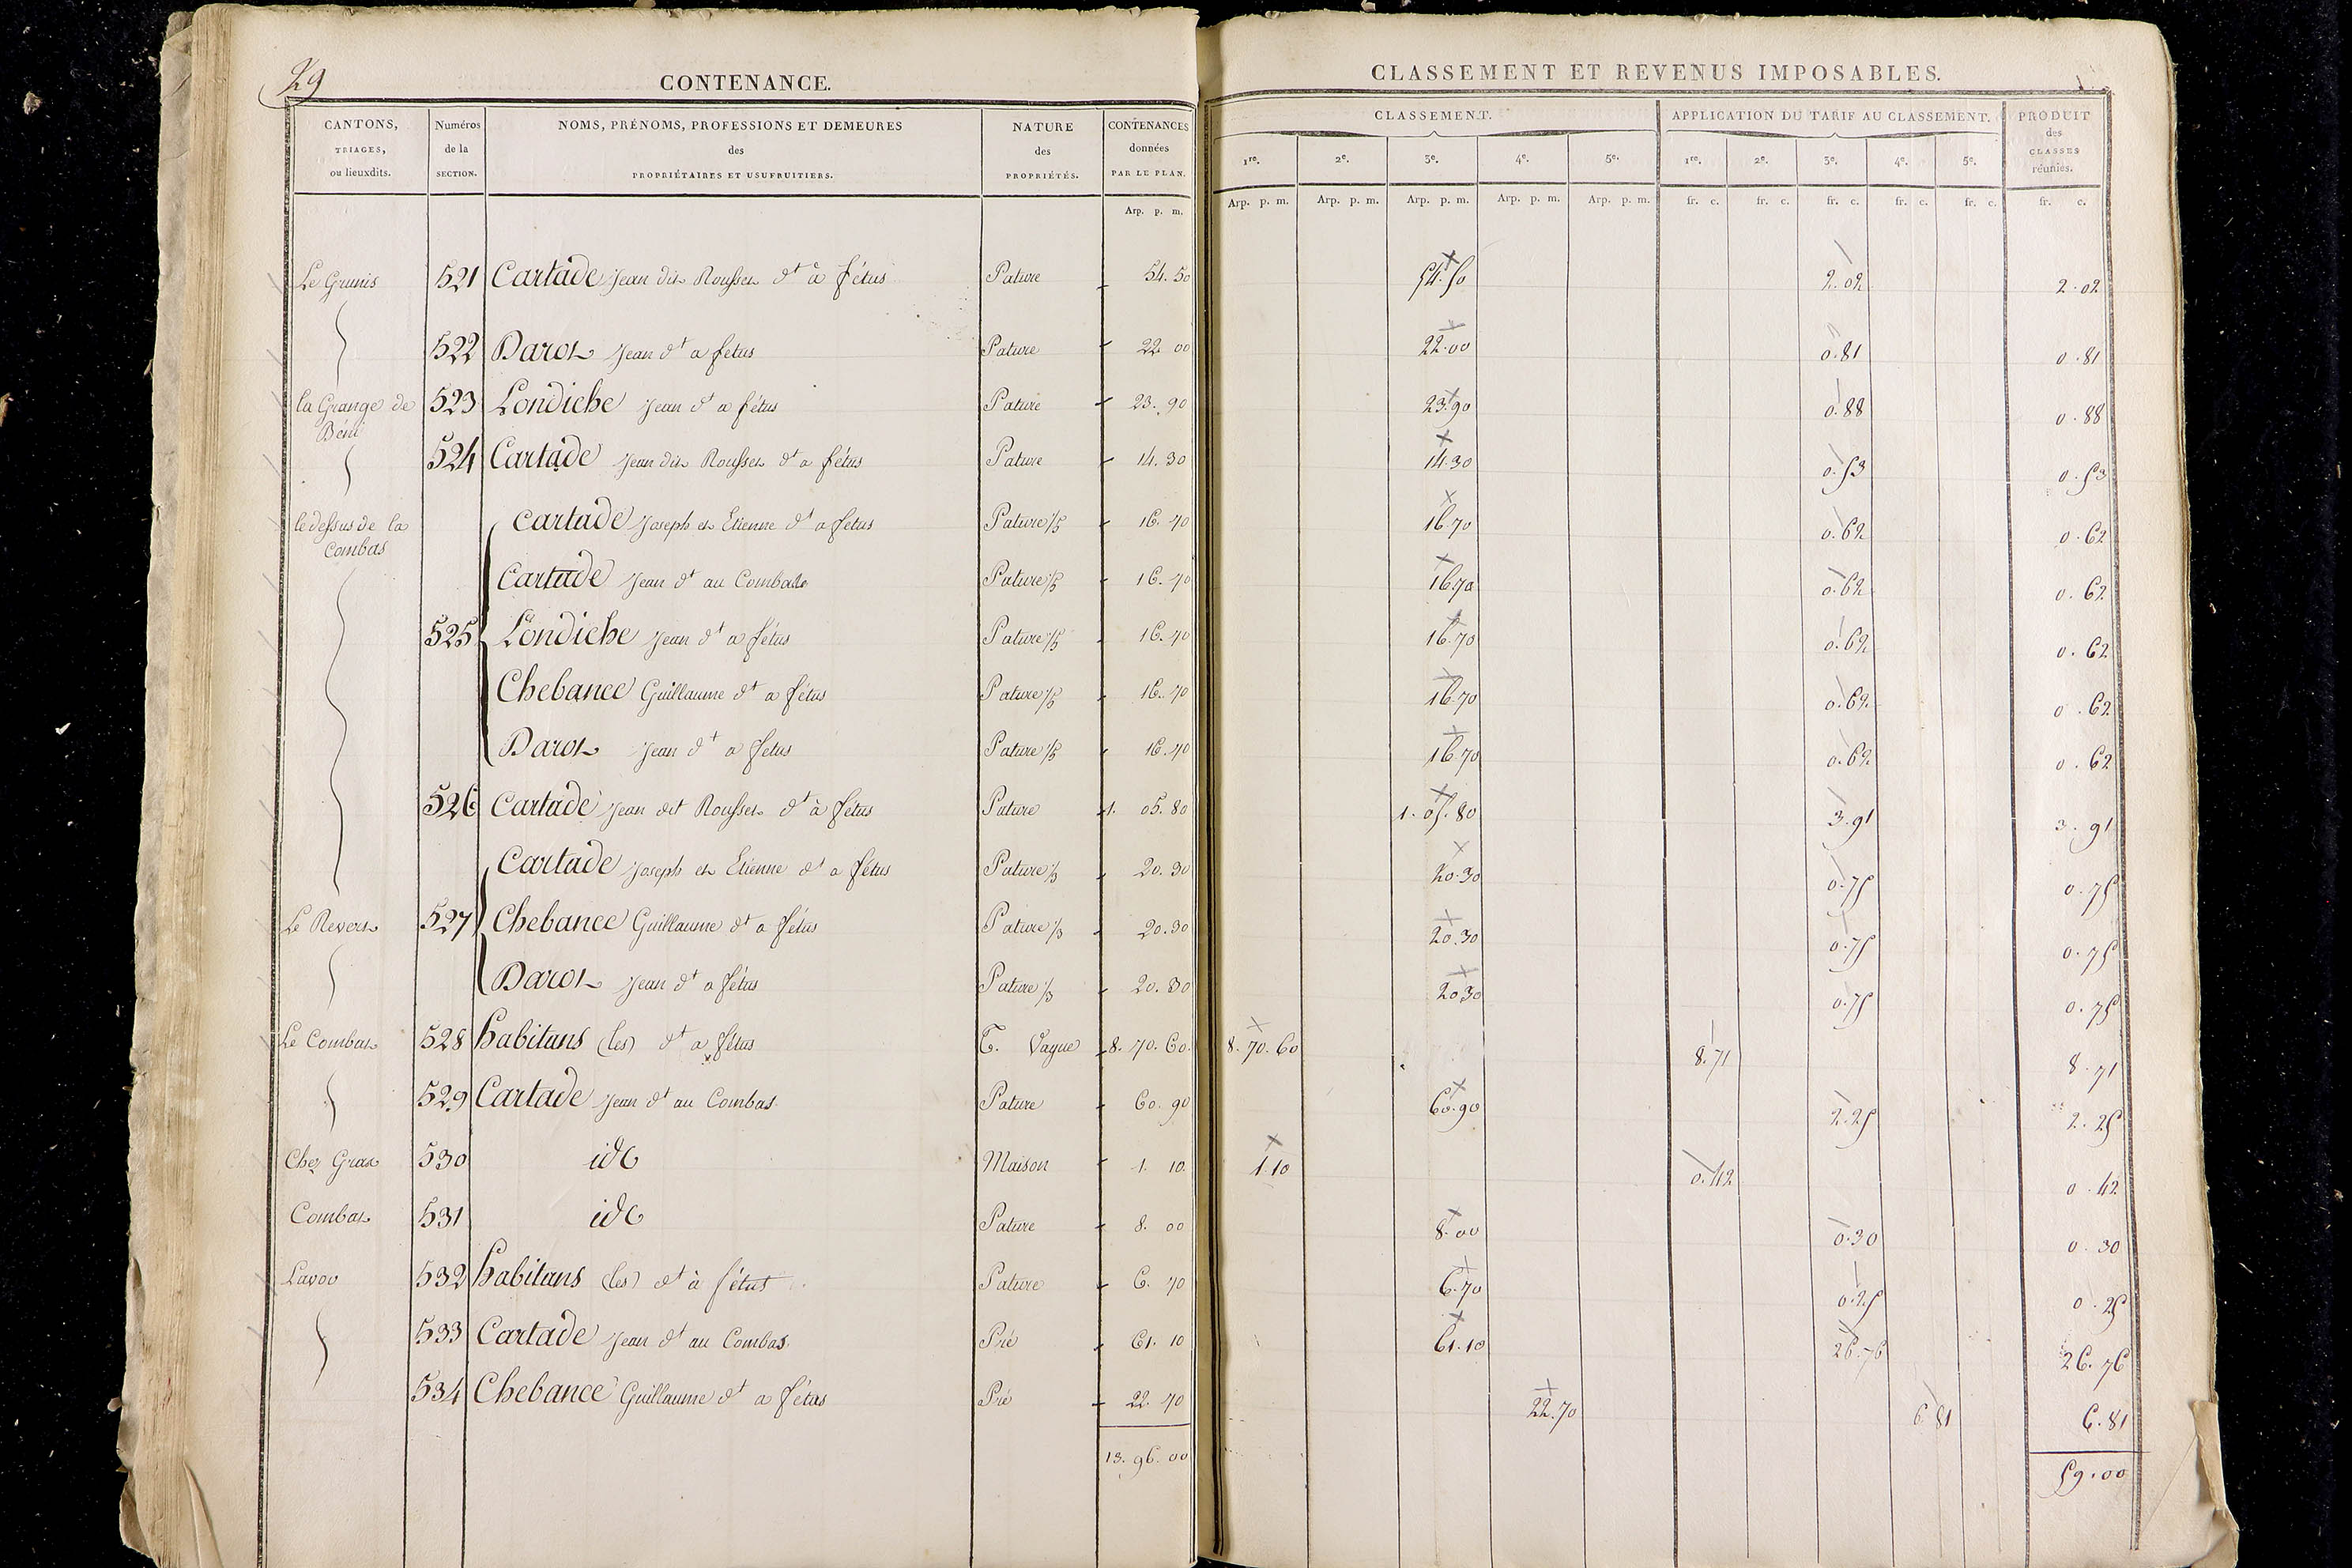 29
CONTENANCE.
CLASSEMENT ET REVENUS IMPOSABLES.
CANTONS, TRIAGES, ou lieuxdits. | Numéros de la SECTION. | NOMS, PRÉNOMS, PROFESSIONS ET DEMEURES des PROPRIÉTAIRES ET USUFRUITIERS. | NATURE des PROPRIÉTÉS. | CONTENANCES données PAR LE PLAN. | CLASSEMENT. | APPLICATION DU TARIF AU CLASSEMENT. | PRODUIT des CLASSES réunies.
1re. 2e. 3e. 4e. 5e. 1re. 2e. 3e. 4e. 5e.
Arp. p. m. Arp. p. m. Arp. p. m. Arp. p. m. Arp. p. m. Arp. p. m. fr. c. fr. c. fr. c. fr. c. fr. c. fr. c.
Le Grunis 521 Cartade Jean dit Rousset dt à fétus Pature 54. 50 54.50 2.02 2.02
522 Darot Jean dt a fetus Pature 22 00 22.00 0.81 0.81
la Grange de 523 Londiche Jean dt a fétus Pature 23. 90 23.90 0.88 0.88
Béni
524 Cartade Jean dit Rousset dt a fétus Pature 14. 30 14.30 0.53 0.53
le dessus de la Cartade Joseph et Etienne dt a fetus Pature 1/5 16. 70 16.70 0.62 0.62
Combas
Cartade Jean dt au Combat Pature 1/5 16. 70 16.70 0.62 0.62
525 Londiche Jean dt a fétus Pature 1/5 16. 70 16.70 0.62 0.62
Chebance Guillaume dt a fétus Pature 1/5 16. 70 16.70 0.62 0.62
Darot Jean dt a fétus Pature 1/5 16. 70 16.70 0.62 0.62
526 Cartade Jean dit Rousset dt à fétus Pature 1. 05. 80 1. 05. 80 3.91 3.91
Cartade Joseph et Etienne dt a fétus Pature 1/3 20. 30 20.30 0.75 0.75
Le Revert 527 Chebance Guillaume dt a fétus Pature 1/3 20.30 20.30 0.75 0.75
Darot Jean dt a fétus Pature 1/3 20. 30 20.30 0.75 0.75
Le Combat 528 habitans (les) dt a fétus T. Vague 8. 70. 60. 8. 70. 60 8.71 8.71
529 Cartade Jean dt au Combas Pature 60. 90 60.90 2.25 2.25
Chez Gras 530 id Maison 1. 10 1.10 0.42 0.42
Combat 531 id Pature 8. 00 8.00 0.30 0.30
Lavou 532 habitans (les) dt à fétus Pature 6. 70 6.70 0.25 0.25
533 Cartade Jean dt au Combas Pré 61. 10 61.10 26.76 26.76
534 Chebance Guillaume dt a fétus Pré 22. 70 22.70 6.81 6.81
13. 96. 00 59.00